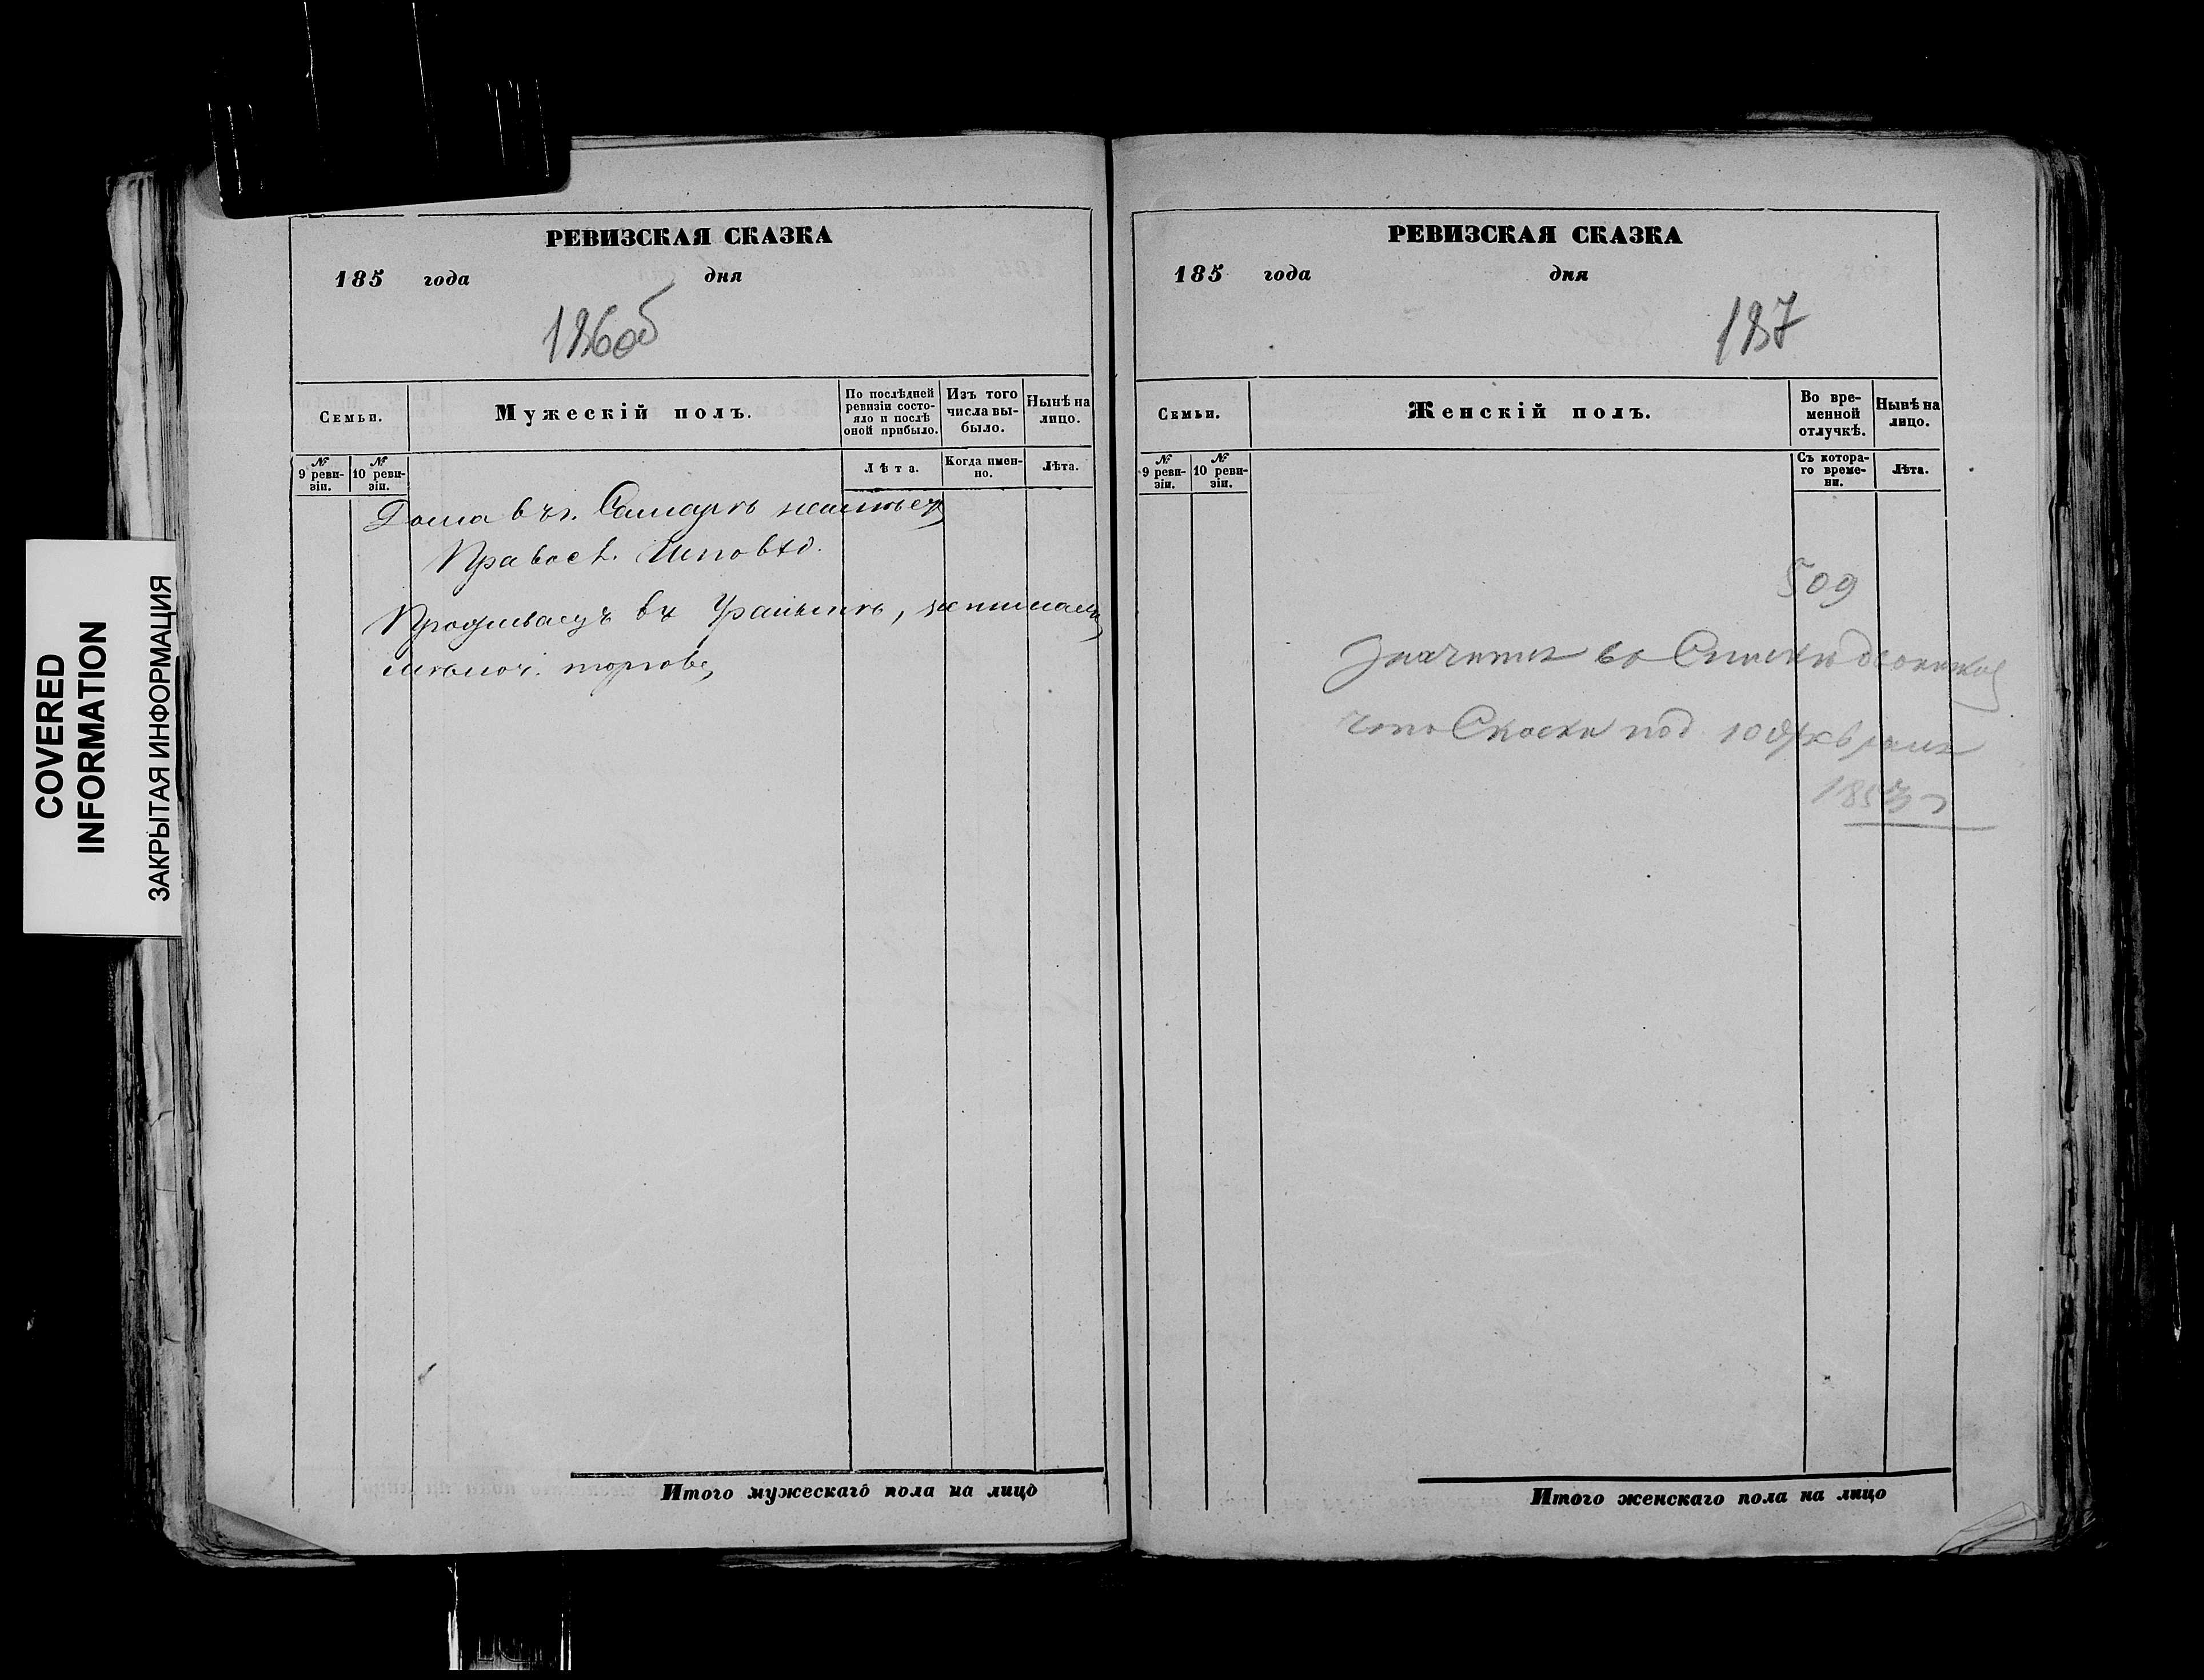 COVERED
INFORMATION
ЗАКРЫТАЯ ИНФОРМАЦИЯ
РЕВИЗСКАЯ СКАЗКА
185 года дня
186об
Семьи.
Мужескій полъ.
По послѣдней ревизіи состояло и послѣ оной прибыло.
Изъ того числа выбыло.
Нынѣ на лицо.
№ 9 ревизіи.
№ 10 ревизіи.
Лѣта.
Когда именно.
Лѣта.
Дома въ г. Самарѣ
Правосл. Исповѣд.
Проживаетъ въ
мѣлоч. торгов
Итого мужескаго пола на лицо
РЕВИЗСКАЯ СКАЗКА
185 года дня
187
Семьи.
Женскій полъ.
Во временной отлучкѣ.
Нынѣ на лицо.
№ 9 ревизіи.
№ 10 ревизіи.
Съ котораго времени.
Лѣта.
509
Значится во
под 10 февраля
Итого женскаго пола на лицо